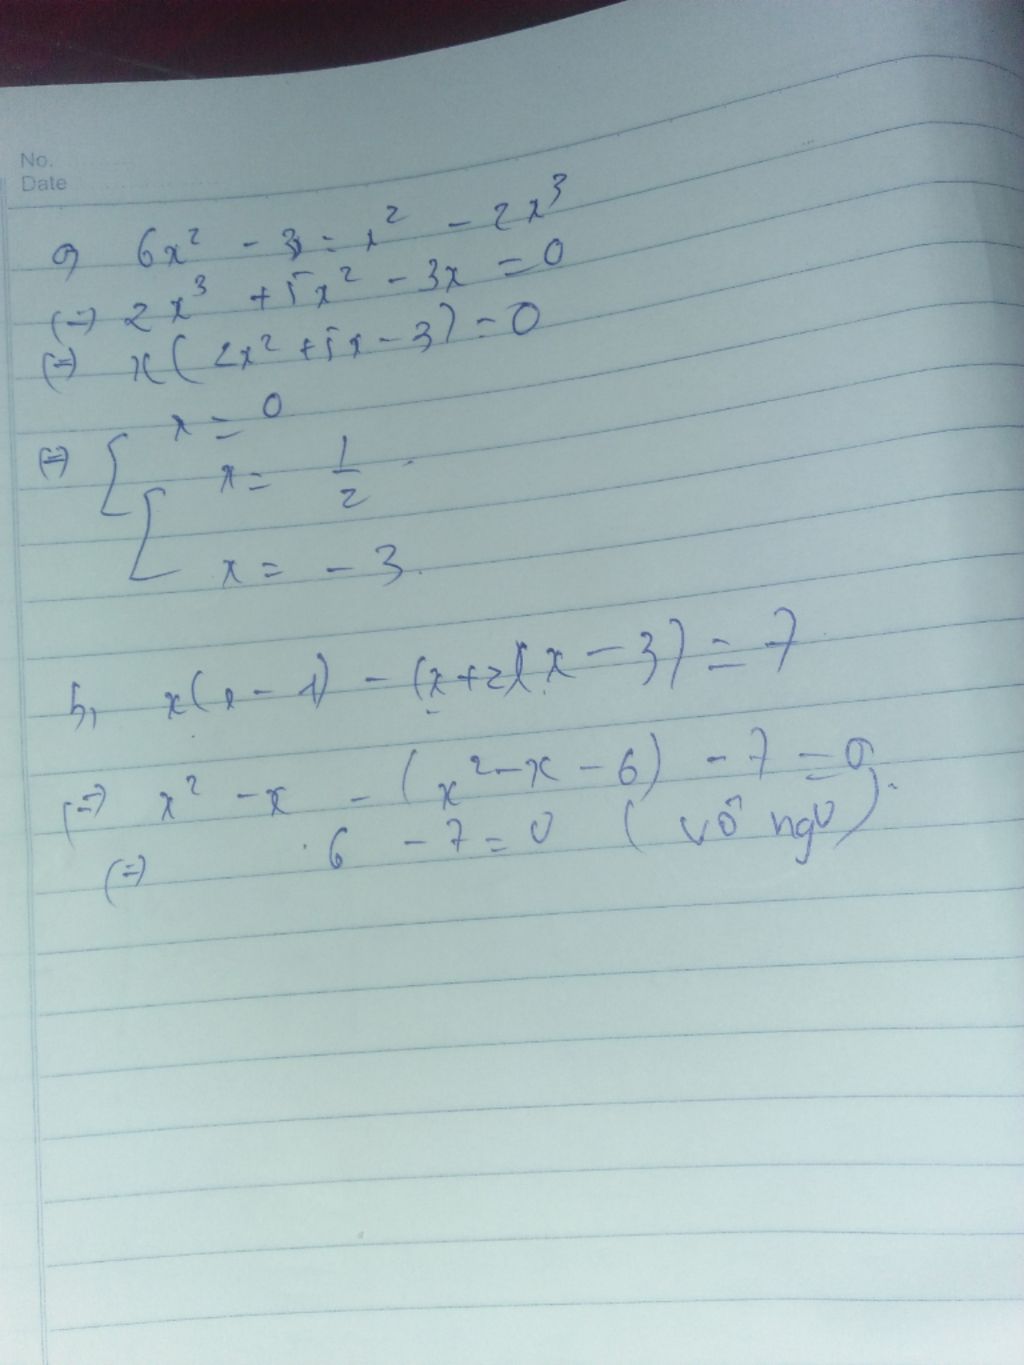 No.
Date
a, 6x² - 3x = x² - 2x³
(=) 2x³ + 5x² - 3x = 0
(=) x( 2x² + 5x - 3) = 0
(=) [ x = 0
[ x = 1/2
x = - 3.
b, x(x - 1) - (x+2)(x - 3) = 7
(=) x² - x - (x² - x - 6) - 7 = 0
(=) 6 - 7 = 0 ( vô ngo).